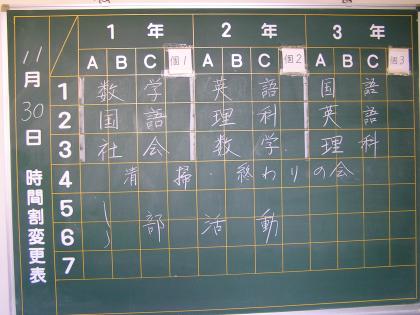 1年 2年 3年
A B C 個1 A B C 個2 A B C 個3
11月30日 時間割変更表
1 数学 英語 国語
2 国語 理科 英語
3 社会 数学 理科
4 清掃・終わりの会
5
6 部活動
7